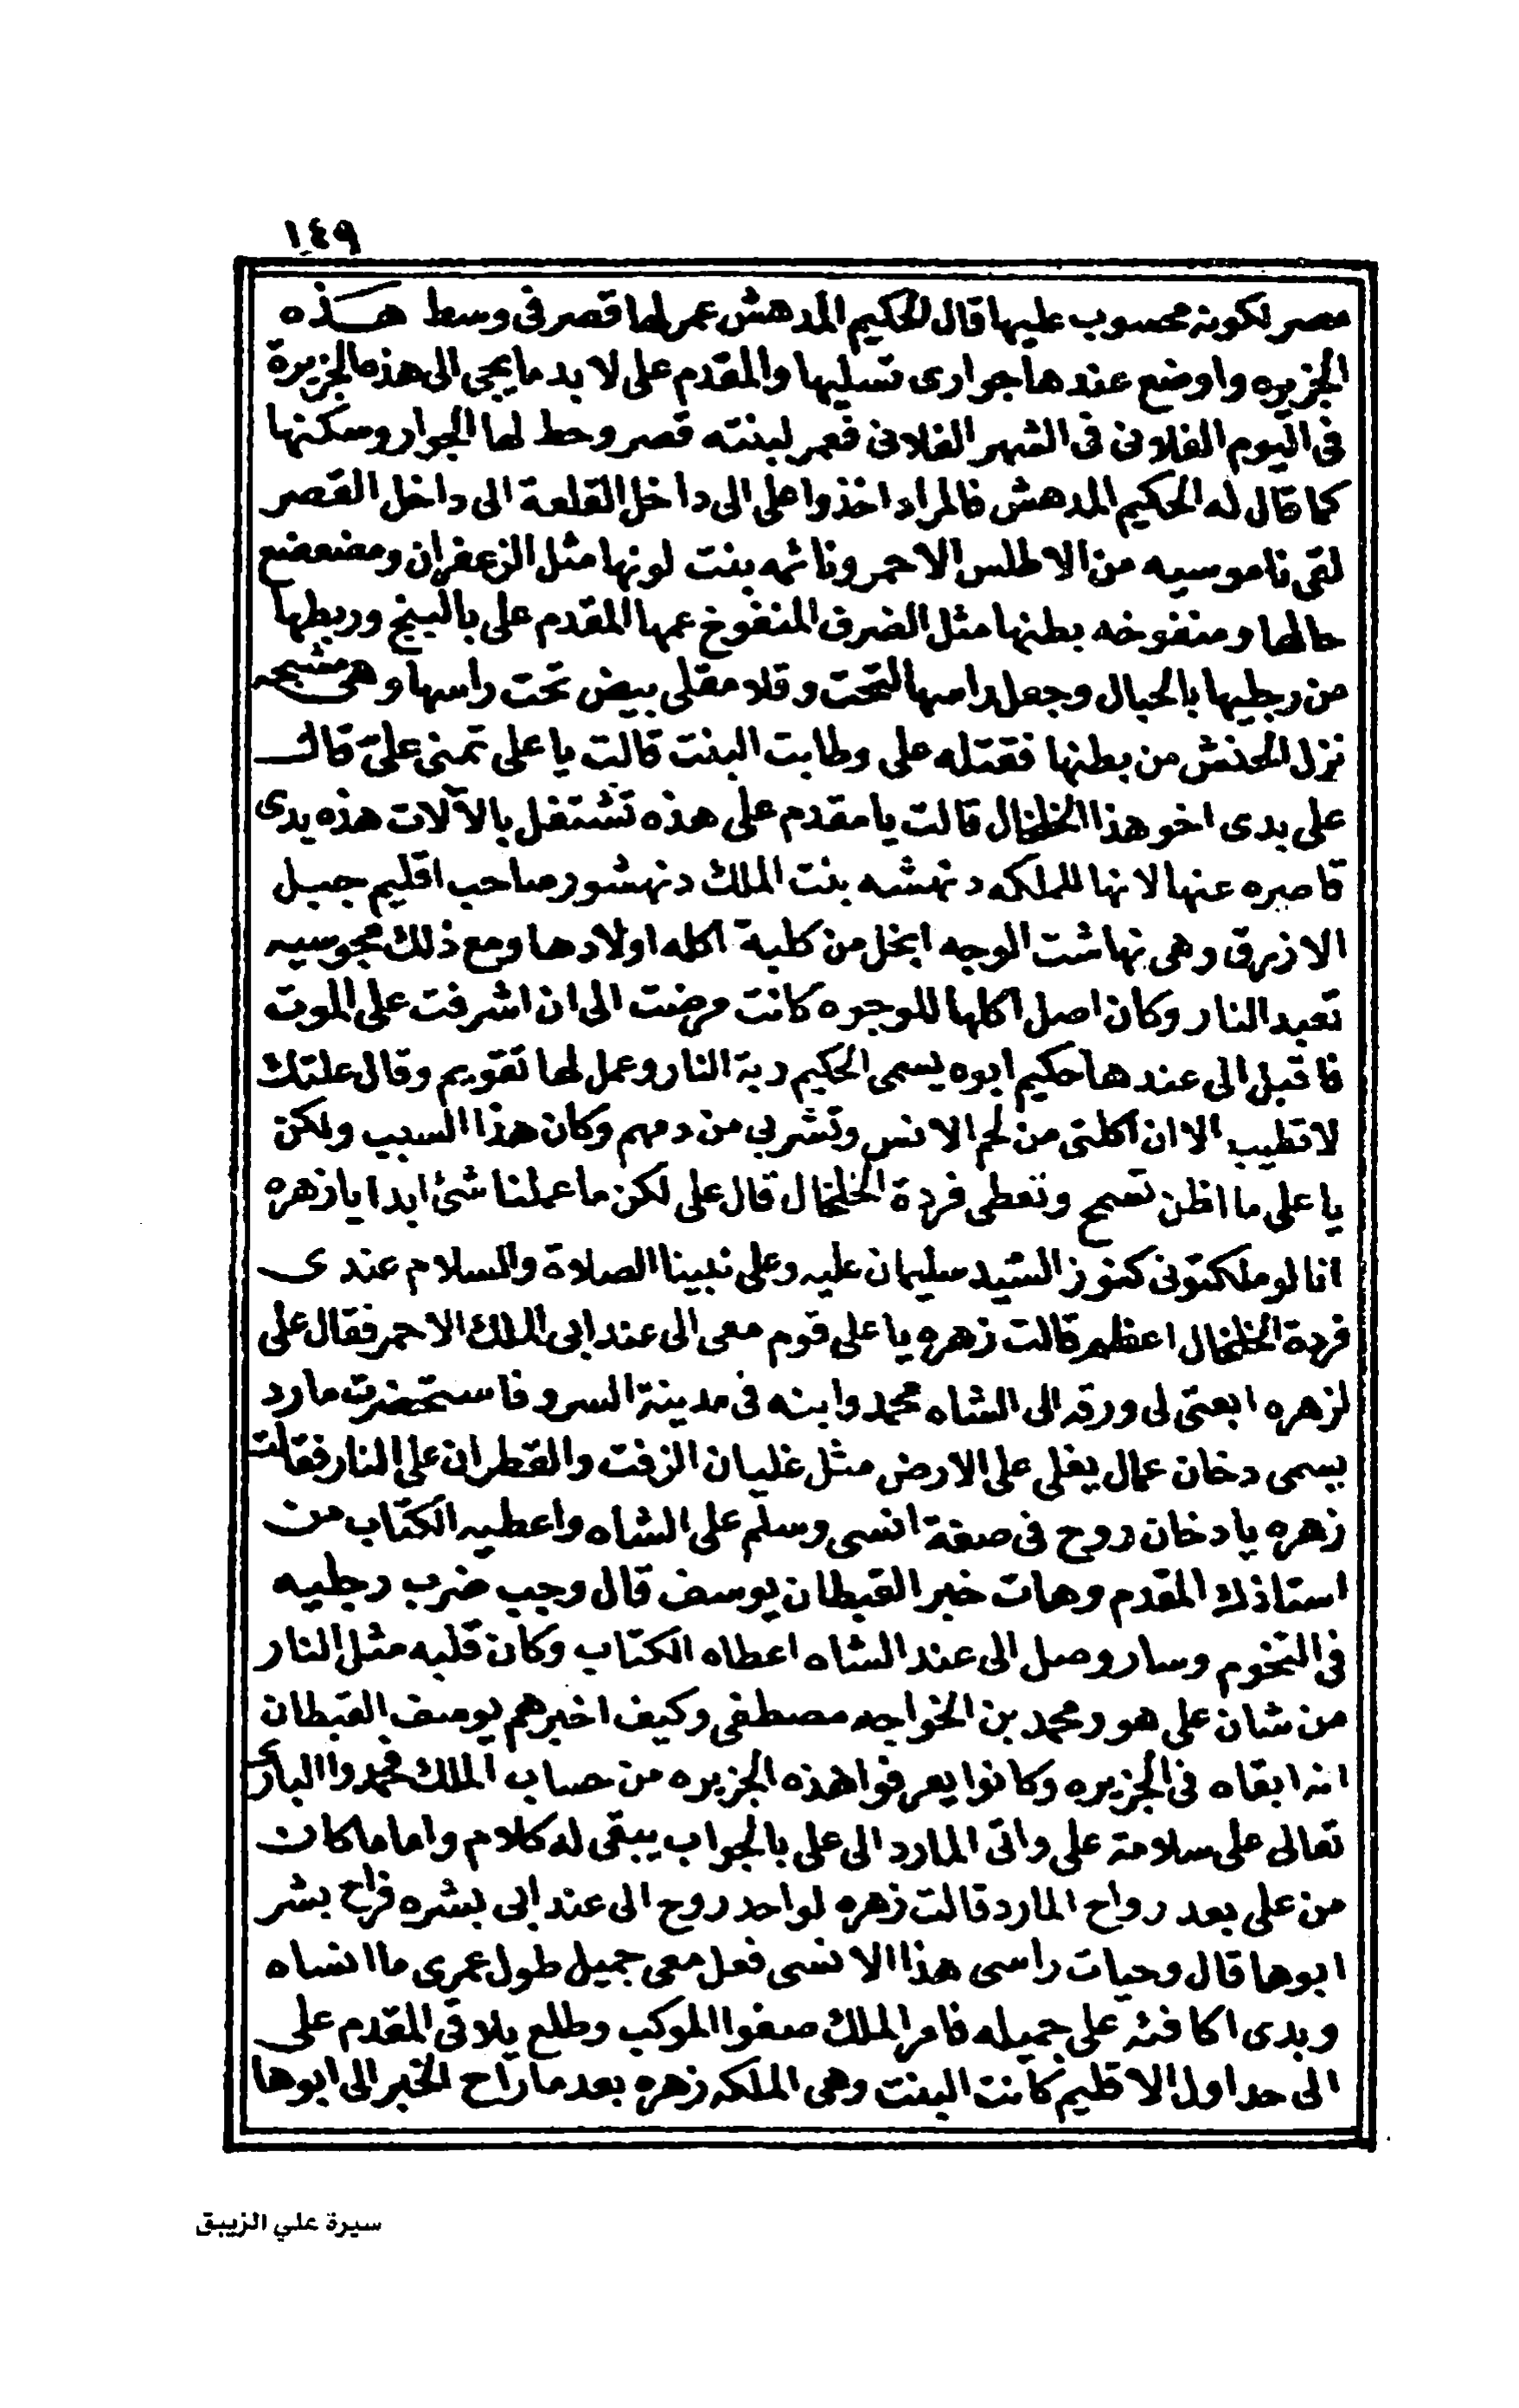 ١٤٩
مصر لكونه محسوب عليها قال الحكيم المدهش عمر لها قصر فى وسط هذه
الجزيره واوضع عندها جوارى تسليها والمقدم على لابد ما يجى الى هذه الجزيرة
فى اليوم الفلانى فى الشهر الفلانى فعمر لبنته قصر وحط لها الجوار وسكنها
كما قال له الحكيم المدهش فالمراد اخذوا على الى داخل القلعة الى داخل القصر
لقى ناموسيه من الاطلس الاحمر ونائمه بنت لونها مثل الزعفران ومضعضع
حالها ومنفوخه بطنها مثل الضرف المنفوخ عمها المقدم على بالبنج وربطها
من رجليها بالحبال وجعل راسها لتحت وقلا مقلى بيض تحت راسها وهى مشبحه
نزل الحنش من بطنها فقتله على وطابت البنت قالت يا على تمنى علىّ قال
على بدى اخو هذا الخلخال قالت يا مقدم على هذه تشتغل بالآلات هذه يدى
قاصره عنها لانها للملكه دنهشه بنت الملك دنهشور صاحب اقليم جبل
الازرق وهى نهاشت الوجه ابخل من كلبة اكله اولادها ومع ذلك مجوسيه
تعبد النار وكان اصل اكلها للوجوه كانت مرضت الى ان اشرفت على الموت
فاقبل الى عندها حكيم ابوه يسمى الحكيم ربة النار وعمل لها تقويم وقال علتك
لا تطيب الا ان اكلتى من لحم الانس وتشربى من دمهم وكان هذا السبب ولكن
يا على ما اظن تسمح وتعطى فردة الخلخال قال على لكن ما عملنا شئ ابدا يا زهره
انا لو ملكتونى كنوز السّيد سليمان عليه وعلى نبينا الصلاة والسلام عندى
فردة الخلخال اعظم قالت زهره يا على قوم معى الى عند ابى الملك الاحمر فقال على
لزهره ابعتى لى ورقه الى الشاه محمد وابنه فى مدينة السرو فاستحضرت مارد
يسمى دخان عمال يغلى على الارض مثل غليان الزفت والقطران على النار فقالت
زهره يا دخان روح فى صفة انسى وسلم على الشاه واعطيه الكتاب من
استاذك المقدم وهات خبر القبطان يوسف قال وجب ضرب رجليه
فى التخوم وسار وصل الى عند الشاه اعطاه الكتاب وكان قلبه مثل النار
من شان على هو ومحمد بن الخواجه مصطفى وكيف اخبرهم يوسف القبطان
انه ابقاه فى الجزيره وكانوا يعرفوا هذه الجزيره من حساب الملك فحمدوا البارئ
تعالى على سلامة على واتى المارد الى على بالجواب يبقى له كلام واما ما كان
من على بعد رواح المارد قالت زهره لواحد روح الى عند ابى بشره فراح بشر
ابوها قال وحيات راسى هذا الانسى فعل معى جميل طول عمرى ما انساه
وبدى اكافئه على جميله فامر الملك صفوا الموكب وطلع يلاقى المقدم على
الى حد اول الاقليم كانت البنت وهى الملكه زهره بعد ما راح الخبر الى ابوها
سيرة علي الزيبق